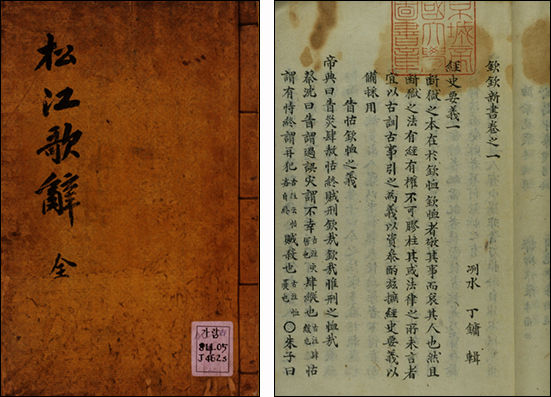 松江歌辭 全
가람
811.05
J462s
京城帝
國大學
圖書章
欽欽新書卷之一
洌水 丁鏞 輯
經史要義一
斷獄之本在於欽恤欽恤者敬其事而哀其人也然且
斷獄之法有經有權不可膠柱其或法律之所未言者
宜以古訓古事引之為義以資叅酌玆摭經史要義以
備採用
眚怙欽恤之義
帝典曰眚災肆赦怙終賊刑欽哉欽哉惟刑之恤哉
蔡沈曰眚謂過誤災謂不幸肆縱也怙
謂有恃終謂再犯賊殺也○朱子曰